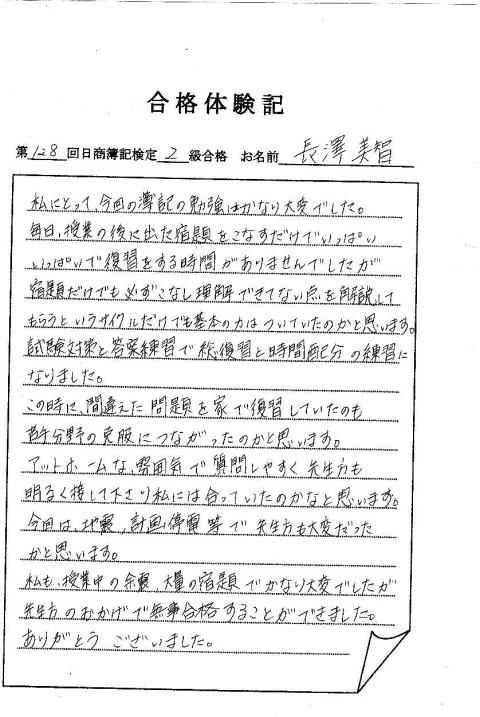 合格体験記
第128回日商簿記検定2級合格 お名前 長澤美智
私にとって、今回の簿記の勉強はかなり大変でした。
毎日、授業の後に出た宿題をこなすだけでいっぱい
いっぱいで復習をする時間がありませんでしたが
宿題だけでも必ずこなし理解できてない点を解説して
もらうというサイクルだけでも基本の力はついていたのかと思います。
試験対策と答案練習で総復習と時間配分の練習に
なりました。
この時に、間違えた問題を家で復習していたのも
苦手分野の克服につながったのかと思います。
アットホームな、雰囲気で質問しやすく先生方も
明るく接して下さり私には合っていたのかなと思います。
今回は、地震、計画停電等で先生方も大変だった
かと思います。
私も、授業中の余震、大量の宿題でかなり大変でしたが
先生方のおかげで無事合格することができました。
ありがとうございました。